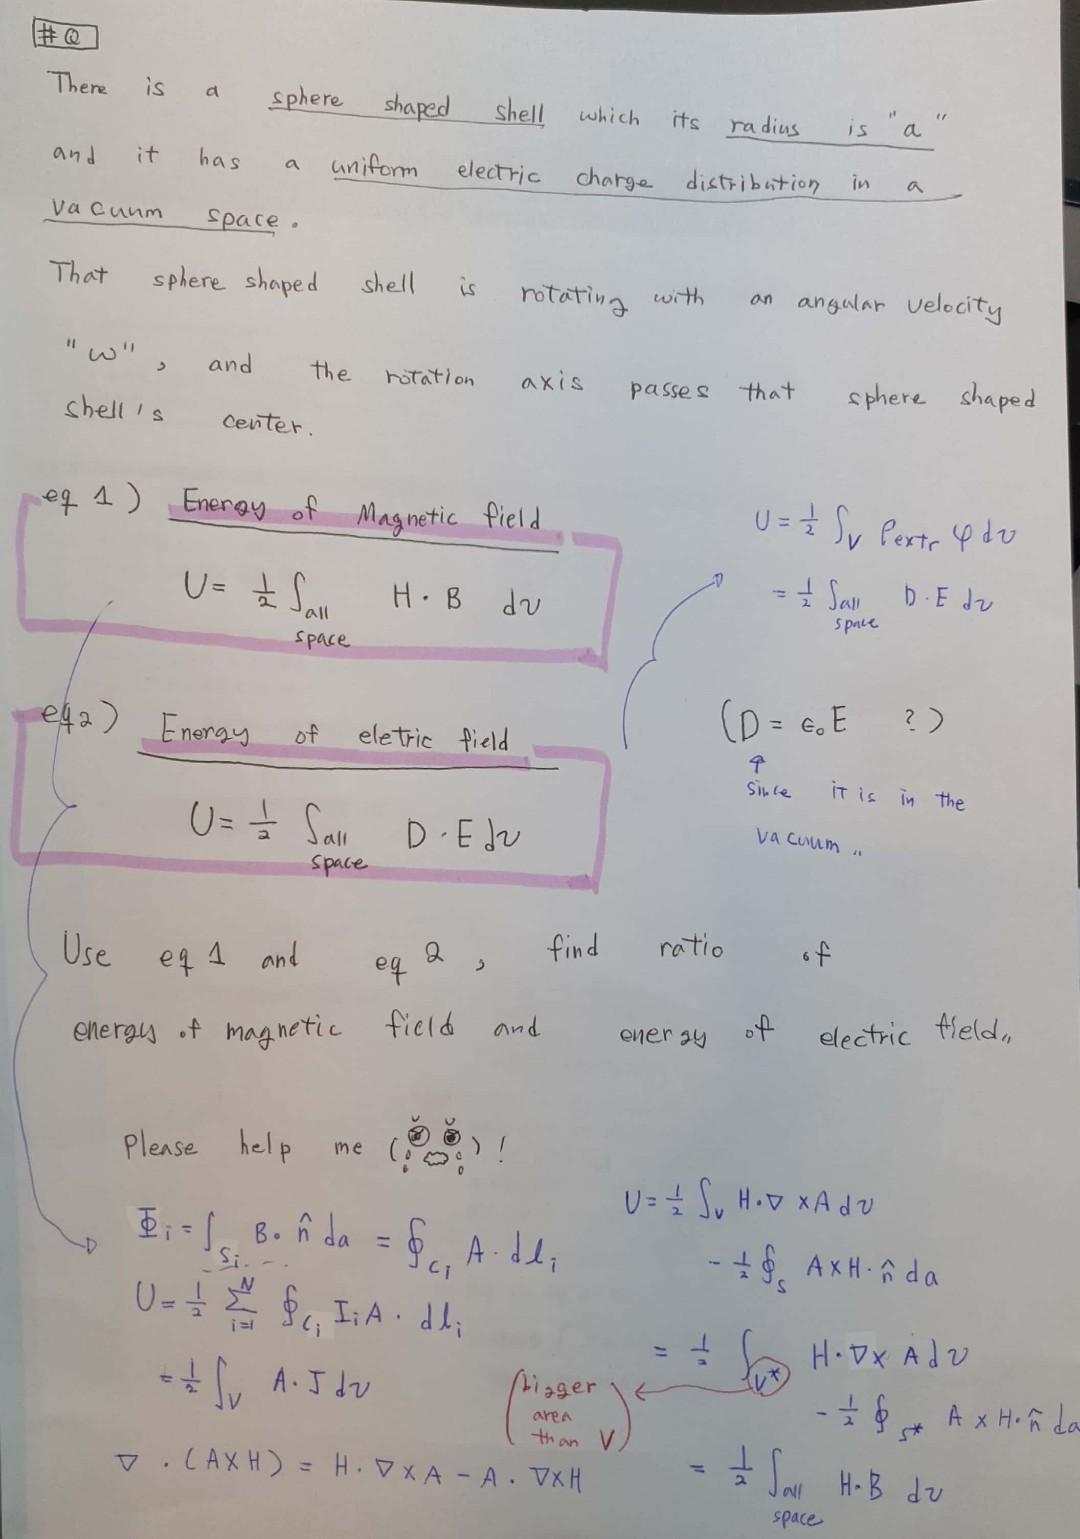 # Q
There is a sphere shaped shell which its radius is "a"
and it has a uniform electric charge distribution in a
vacuum space.
That sphere shaped shell is rotating with an angular velocity
"w", and the rotation axis passes that sphere shaped
shell's center.
eq 1) Energy of Magnetic field
U = 1/2 ∫all space H · B dv
U = 1/2 ∫V ρextr φ dv
= 1/2 ∫all space D · E dv
eq 2) Energy of eletric field
U = 1/2 ∫all space D · E dv
(D = ε₀E ?)
↑
since it is in the
vacuum..
Use eq 1 and eq 2, find ratio of
energy of magnetic field and energy of electric field..
Please help me ( )!
Φi = ∫Si B · n̂ da = ∮Ci A · dli
U = 1/2 Σ i=1 N ∮Ci Ii A · dli
= 1/2 ∫V A · J dv
∇ · (A×H) = H · ∇×A − A · ∇×H
U = 1/2 ∫V H · ∇×A dv
− 1/2 ∮S A×H · n̂ da
= 1/2 ∫V* H · ∇×A dv
(bigger
area
than V)
− 1/2 ∮S* A×H · n̂ da
= 1/2 ∫all space H · B dv